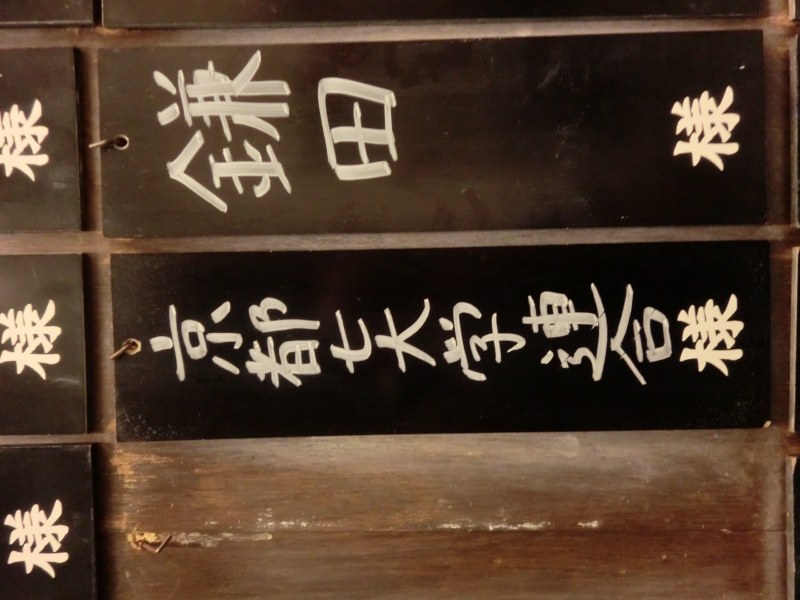 様
様
様
鎌田 様
京都七大学連合様